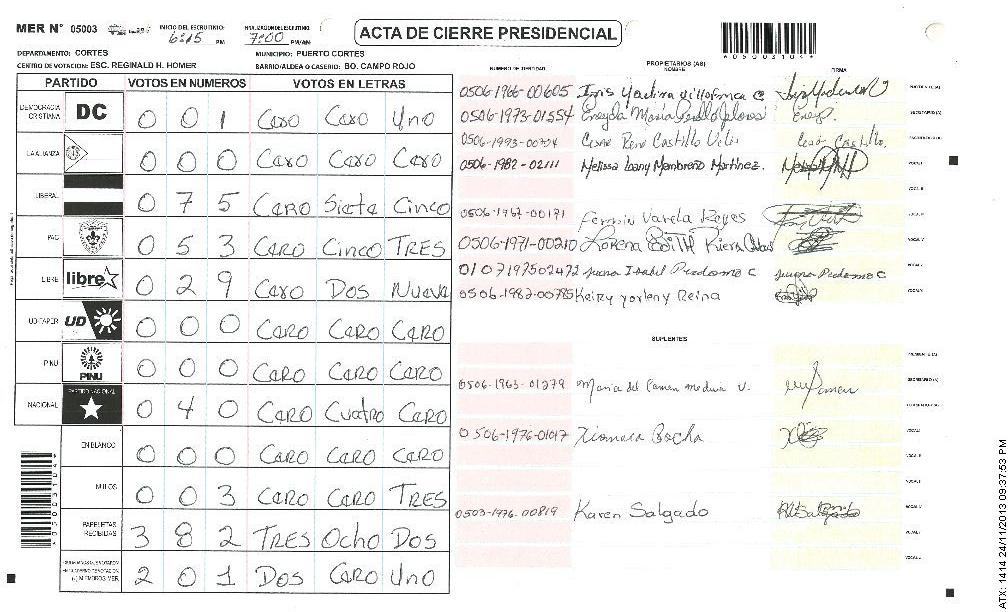 MER Nº 05003
INICIO DEL ESCRUTINIO: 6:15 PM
FINALIZACION DEL ESCRUTINIO: 7:00 PM/AM
ACTA DE CIERRE PRESIDENCIAL
DEPARTAMENTO: CORTES
MUNICIPIO: PUERTO CORTES
CENTRO DE VOTACION: ESC. REGINALD H. HOMER
BARRIO/ALDEA O CASERIO: BO. CAMPO ROJO
PARTIDO VOTOS EN NUMEROS VOTOS EN LETRAS
DEMOCRACIA CRISTIANA DC 0 0 1 Cero Cero Uno
LA ALIANZA 0 0 0 Cero Cero Cero
LIBERAL 0 7 5 Cero Siete Cinco
PAC 0 5 3 Cero Cinco TRES
LIBRE libre 0 2 9 Cero Dos Nueve
UD-FAPER UD 0 0 0 Cero Cero Cero
PINU PINU 0 0 0 Cero Cero Cero
NACIONAL PARTIDO NACIONAL 0 4 0 Cero Cuatro Cero
EN BLANCO 0 0 0 Cero Cero Cero
NULOS 0 0 3 Cero Cero TRES
PAPELETAS RECIBIDAS 3 8 2 TRES Ocho Dos
2 0 1 Dos Cero Uno
NUMERO DE IDENTIDAD PROPIETARIOS (AS) NOMBRE FIRMA
0506-1966-00605 Iris Yadira Villafranca C
0506-1973-01554 Eneyda María
0506-1993-00734 Cesar Rene Castillo Cesar Castillo.
0506-1982-02111 Melissa Ioany Membreño Martinez.
0506-1967-00191 Fermin Varela Reyes
0506-1971-00210 Lorena Edith Rivera
0107197502472 Juana Isabel Perdomo C Juana Perdomo C
0506-1982-00785 Keiry yorleny Reina
SUPLENTES
0506-1963-01279 Maria del Carmen Medina V.
0506-1976-01017 Xiomara Bocha
0503-1976-00819 Karen Salgado
ATX: 1414 24/11/2013 09:37:53 PM